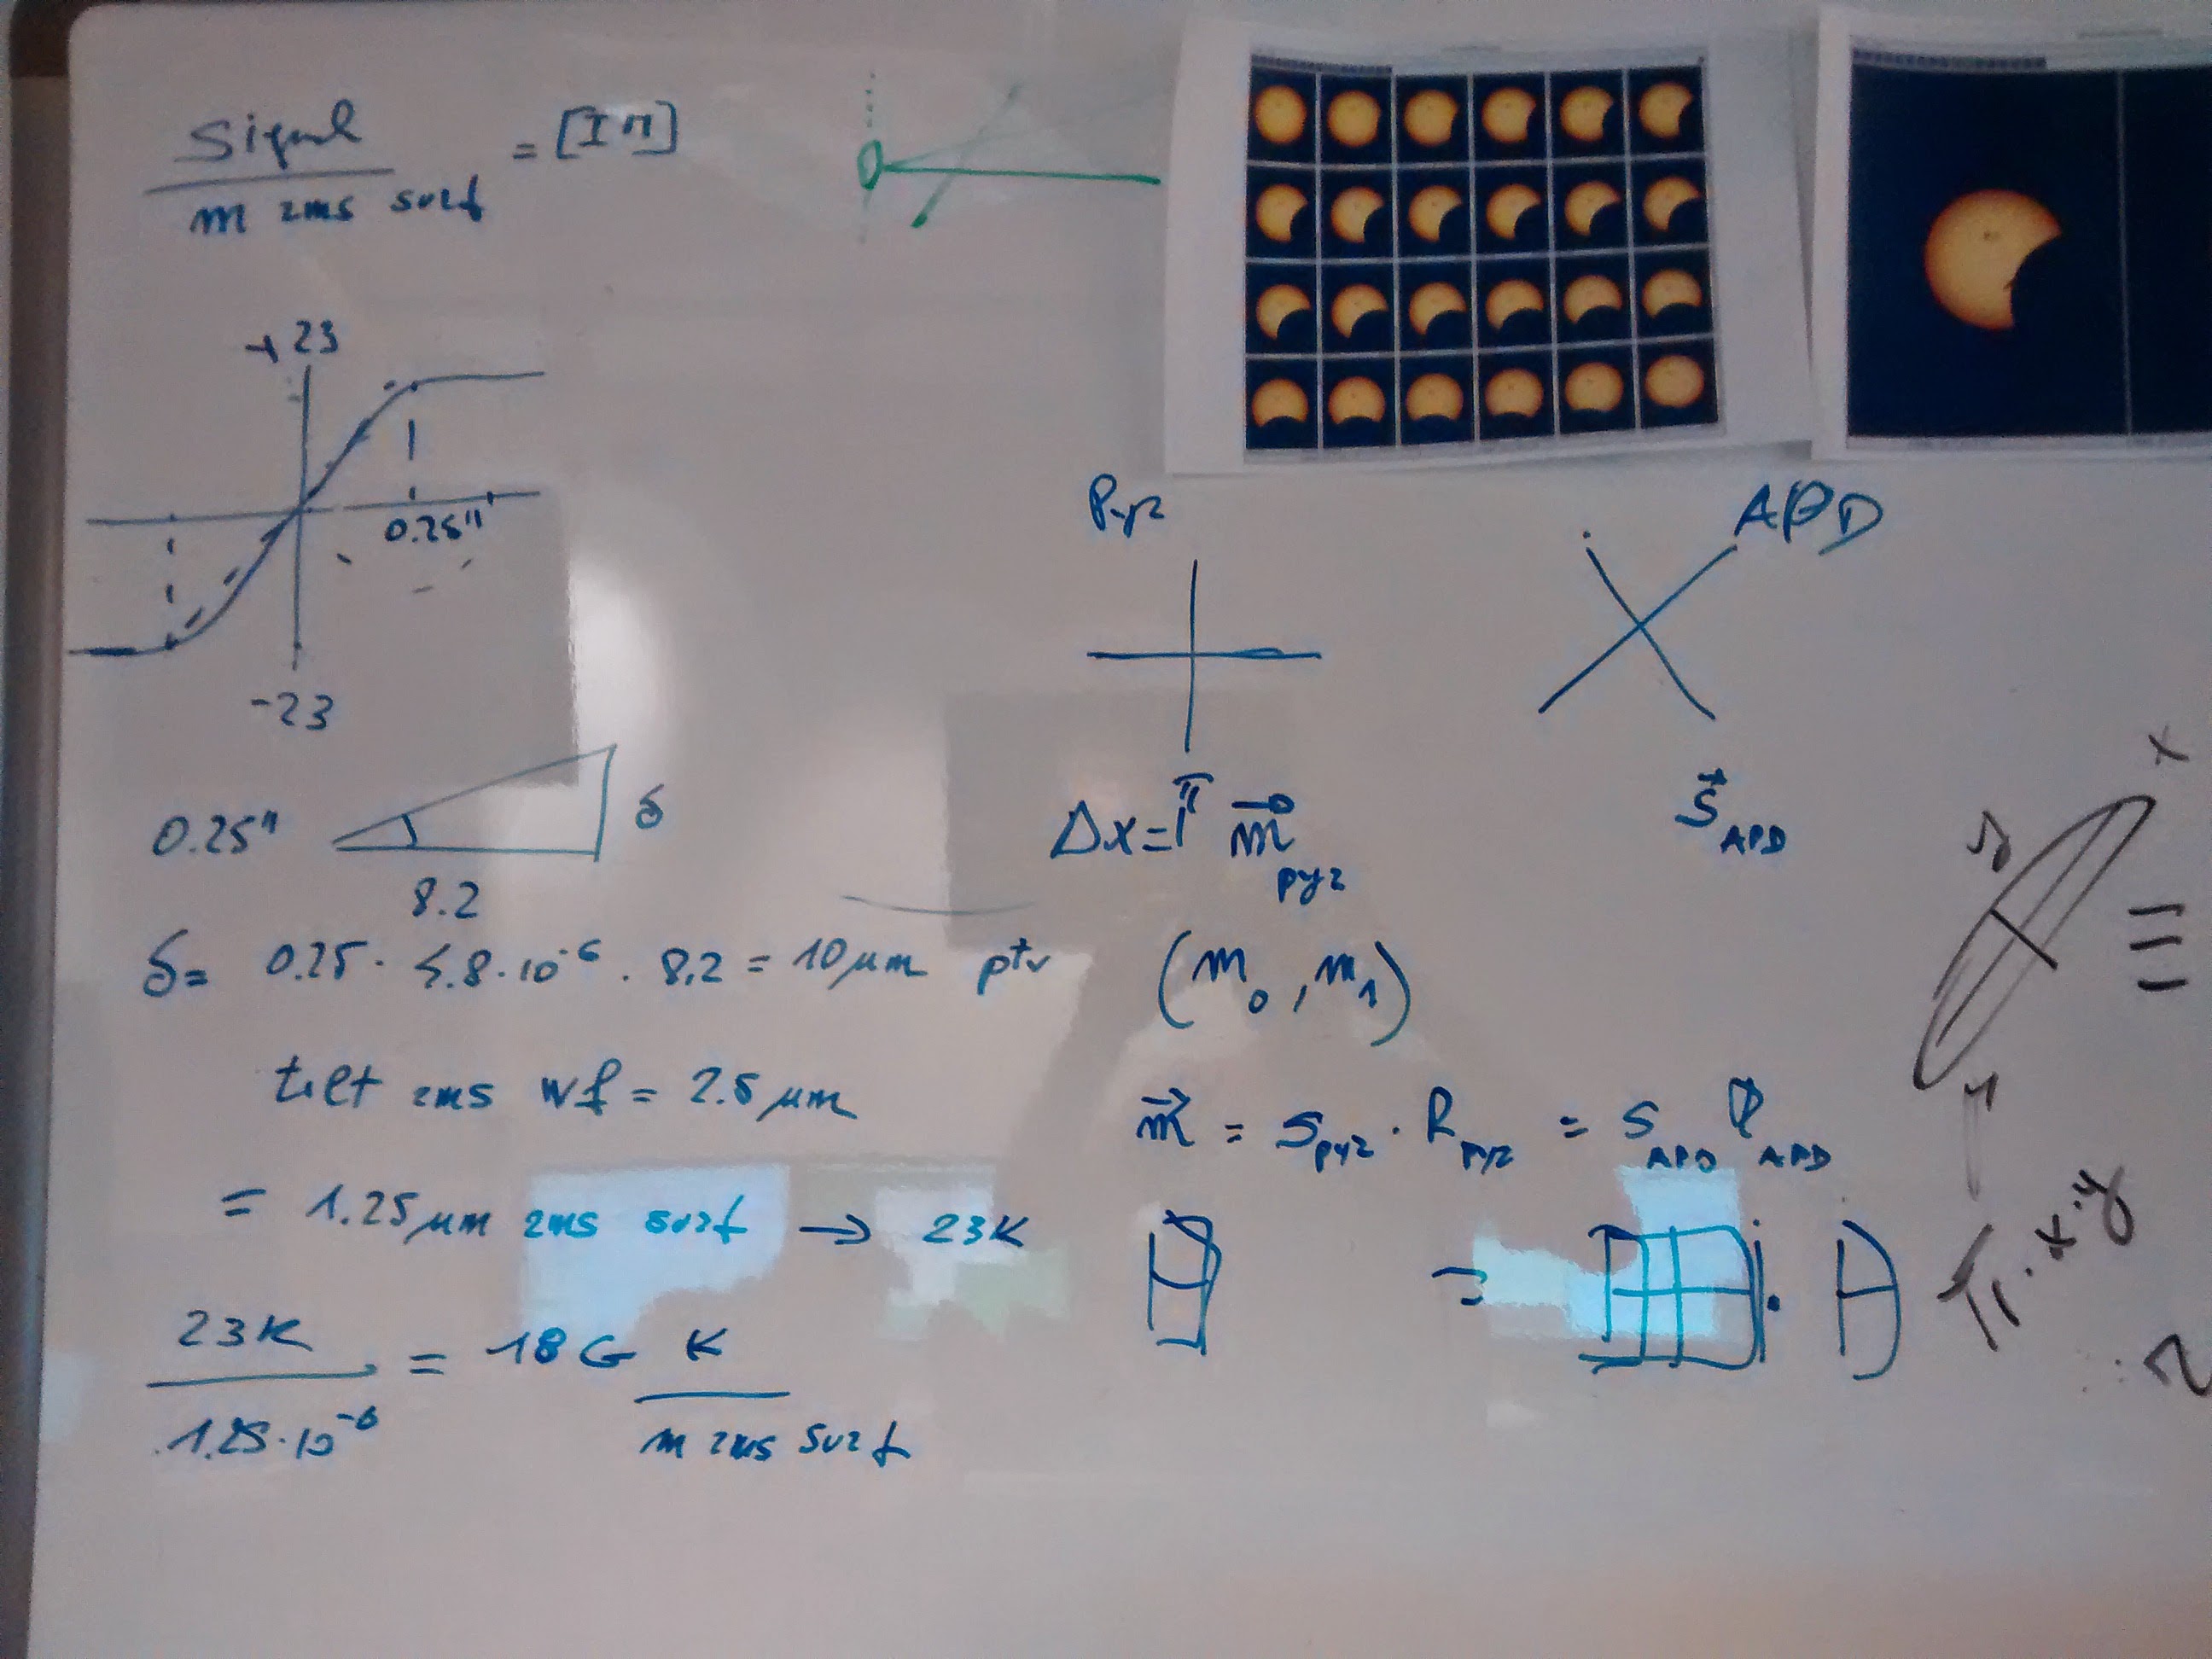 Signal
m rms surf
= [IM]
+23
0.25"
-23
0.25"
δ
8.2
δ= 0.25 · 4.8·10⁻⁶ . 8.2 = 10 μm ptv
tilt rms wf = 2.5 μm
= 1.25 μm rms surf → 23K
23K
1.25·10⁻⁶
= 18 G K
m rms surf
Pyr
APD
Δx=
m⃗ pyr
S⃗ APD
(m₀, m₁)
m⃗ = S pyr · R pyr = S APD R APD
=
x
≡
π·x·y